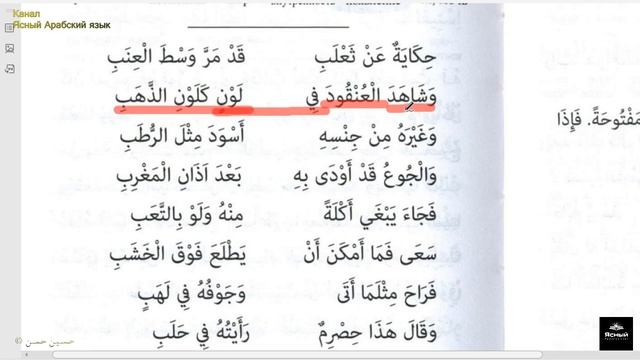 Канал
Ясный Арабский язык
внутренность
حِكَايَةٌ عَنْ ثَعْلَبِ قَدْ مَرَّ وَسْطَ الْعِنَبِ
وَشَاهَدَ الْعُنْقُودَ فِي لَوْنٍ كَلَوْنِ الذَّهَبِ
وَغَيْرَهُ مِنْ جِنْسِهِ أَسْوَدَ مِثْلَ الرُّطَبِ
وَالْجُوعُ قَدْ أَوْدَى بِهِ بَعْدَ اَذَانِ الْمَغْرِبِ
فَجَاءَ يَبْغَي أَكْلَةً مِنْهُ وَلَوْ بِالتَّعَبِ
سَعَى فَمَا أَمْكَنَ أَنْ يَطْلَعَ فَوْقَ الْخَشَبِ
فَرَاحَ مِثْلَمَا أَتَى وَجَوْفُهُ فِي لَهَبٍ
وَقَالَ هَذَا حِصْرِمٌ رَأَيْتُهُ فِي حَلَبِ
مَفْتُوحَةً. فَإِذَا
© حسين حسن
ЯСНЫЙ